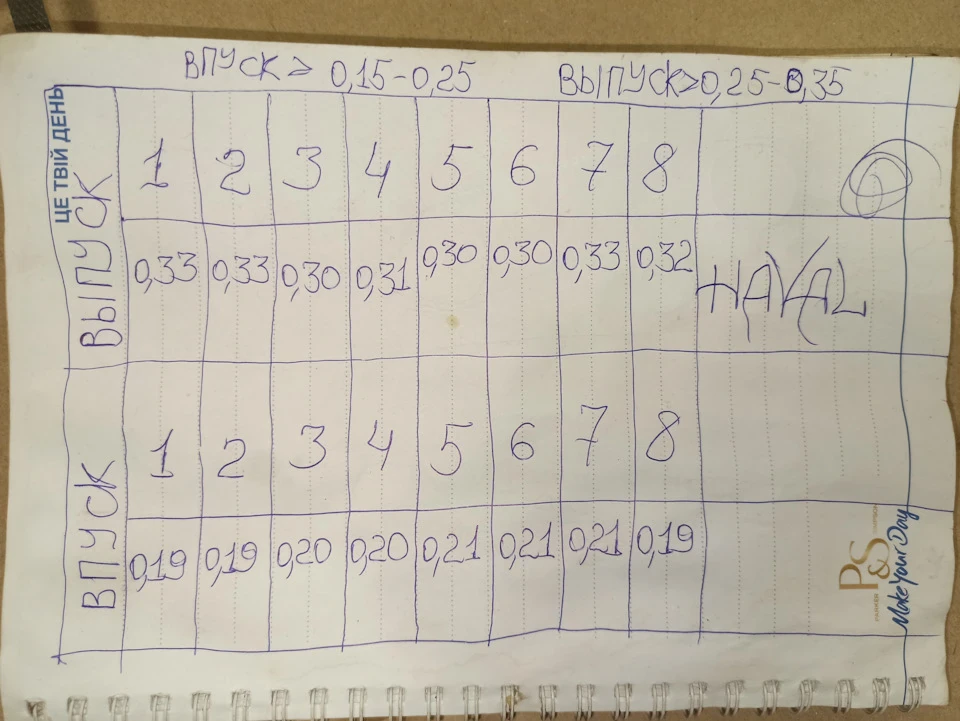 ВПУСК > 0,15-0,25 ВЫПУСК>0,25-0,35
ЦЕ ТВІЙ ДЕНЬ
ВЫПУСК
1 2 3 4 5 6 7 8
0,33 0,33 0,30 0,31 0,30 0,30 0,33 0,32 HAVAL
ВПУСК
1 2 3 4 5 6 7 8
0,19 0,19 0,20 0,20 0,21 0,21 0,21 0,19
P&S
Make Your Day